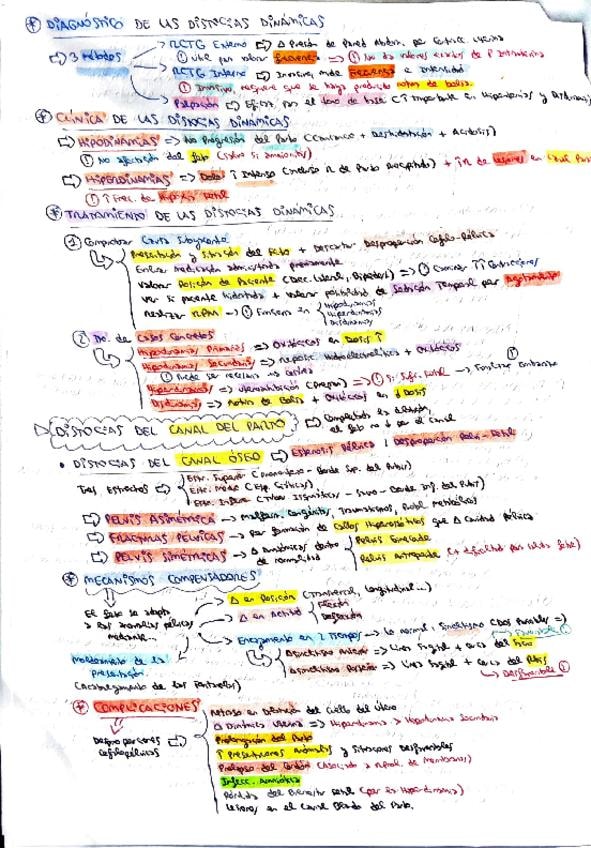 * DIAGNÓSTICO DE LAS DISTOCIAS DINÁMICAS
→ 3 Métodos
RCTG Externo ⇒ Δ Presión de Pared Abdom. por
① Útil por valorar frecuencia ⇒ ① No da valores exactos de P Intrauterina
RCTG Interno ⇒ Invasivo, mide frecuencia e intensidad
① Invasivo, requiere que se haya producido rotura de bolsa.
Palpación ⇒ (↑ importante en Hipodinamias y Disdinamias)
* CLÍNICA DE LAS DISTOCIAS DINÁMICAS
⇒ HIPODINAMIAS ⇒ No Progresión del Parto (Cansancio + Deshidratación + Acidosis)
① No afectación del feto
⇒ HIPERDINAMIAS ⇒ Dolor ↑ Intenso + ↑ R de lesiones en Canal Parto
① ↑ Frec. de Hipoxia Fetal
* TRATAMIENTO DE LAS DISTOCIAS DINÁMICAS
① Comprobar Causa Subyacente
Presentación y Situación del Feto + Descartar Desproporción Céfalo-Pélvica
Evaluar medicación administrada previamente
Valorar Posición de Paciente (Dec. Lateral, Bipedest.) ⇒ ① Caminar ↑↑ Contracciones
Ver si paciente hidratada + valorar posibilidad de Sedación Temporal por Agotamiento
Realizar → ① Funciona en
Hipodinamias
Hiperdinamias
Disdinamias
② Tto. de Casos Concretos
Hipodinamias Primarias ⇒ Oxitócicos en Dosis ↑
Hipodinamias Secundarias ⇒ Reposic. Hidroelectrolítica + Oxitócicos
Hiperdinamias ⇒ ① Si Sufr. Fetal → Finalizar Embarazo
Disdinamias ⇒ Rotura de Bolsa + Oxitócicos en ↓ Dosis
DISTOCIAS DEL CANAL DEL PARTO ⇒ Completada la dilatación, el feto no ↓ por el canal
• DISTOCIAS DEL CANAL ÓSEO ⇒ Estenosis Pélvica / Desproporción Pelvi-Fetal
Tres Estrechos ⇒
Estr. Superior (Promontorio - Borde Sup. del Pubis)
Estr. Medio (Esp. Ciáticas)
Estr. Inferior (Tuber. Isquiáticas - - Borde Inf. del Pubis)
⇒ PELVIS ASIMÉTRICA → Malform. Congénita, Traumatismos, Enferm. Metabólicas
⇒ FRACTURAS PÉLVICAS → por formación de Callos Hiperostósicos que Δ Cavidad Pélvica
⇒ PELVIS SIMÉTRICAS → Δ anatómicas dentro de normalidad
Pelvis Ginecoide
Pelvis Antropoide
* MECANISMOS COMPENSADORES
El feto se adapta a las anomalías pélvicas mediante...
→ Δ en Posición (Transversal, Longitudinal...)
→ Δ en Actitud
Flexión
Deflexión
→ Encajamiento en 2 Tiempos → Lo normal, Sinclitismo
Asinclitismo Anterior ⇒ Línea Sagital + cerca del Sacro
→ Favorable ①
Asinclitismo Posterior ⇒ Línea Sagital + cerca del Pubis
→ Desfavorable ①
Moldeamiento de la Presentación
(Cabalgamiento de los Parietales)
* COMPLICACIONES
Desproporciones Cefalopélvicas ⇒
Retraso en Dilatación del Cuello del Útero
Δ Dinámica Uterina ⇒ Hiperdinamia → Hipodinamia Secundaria
Prolongación del Parto
↑ Presentaciones Anómalas y Situaciones Desfavorables
Prolapso del Cordón (Asociado a R.Prem. de Membranas)
Infecc. Amniótica
Pérdida del Bienestar Fetal (por ej. Hiperdinamia)
Lesiones en el Canal Blando del Parto.